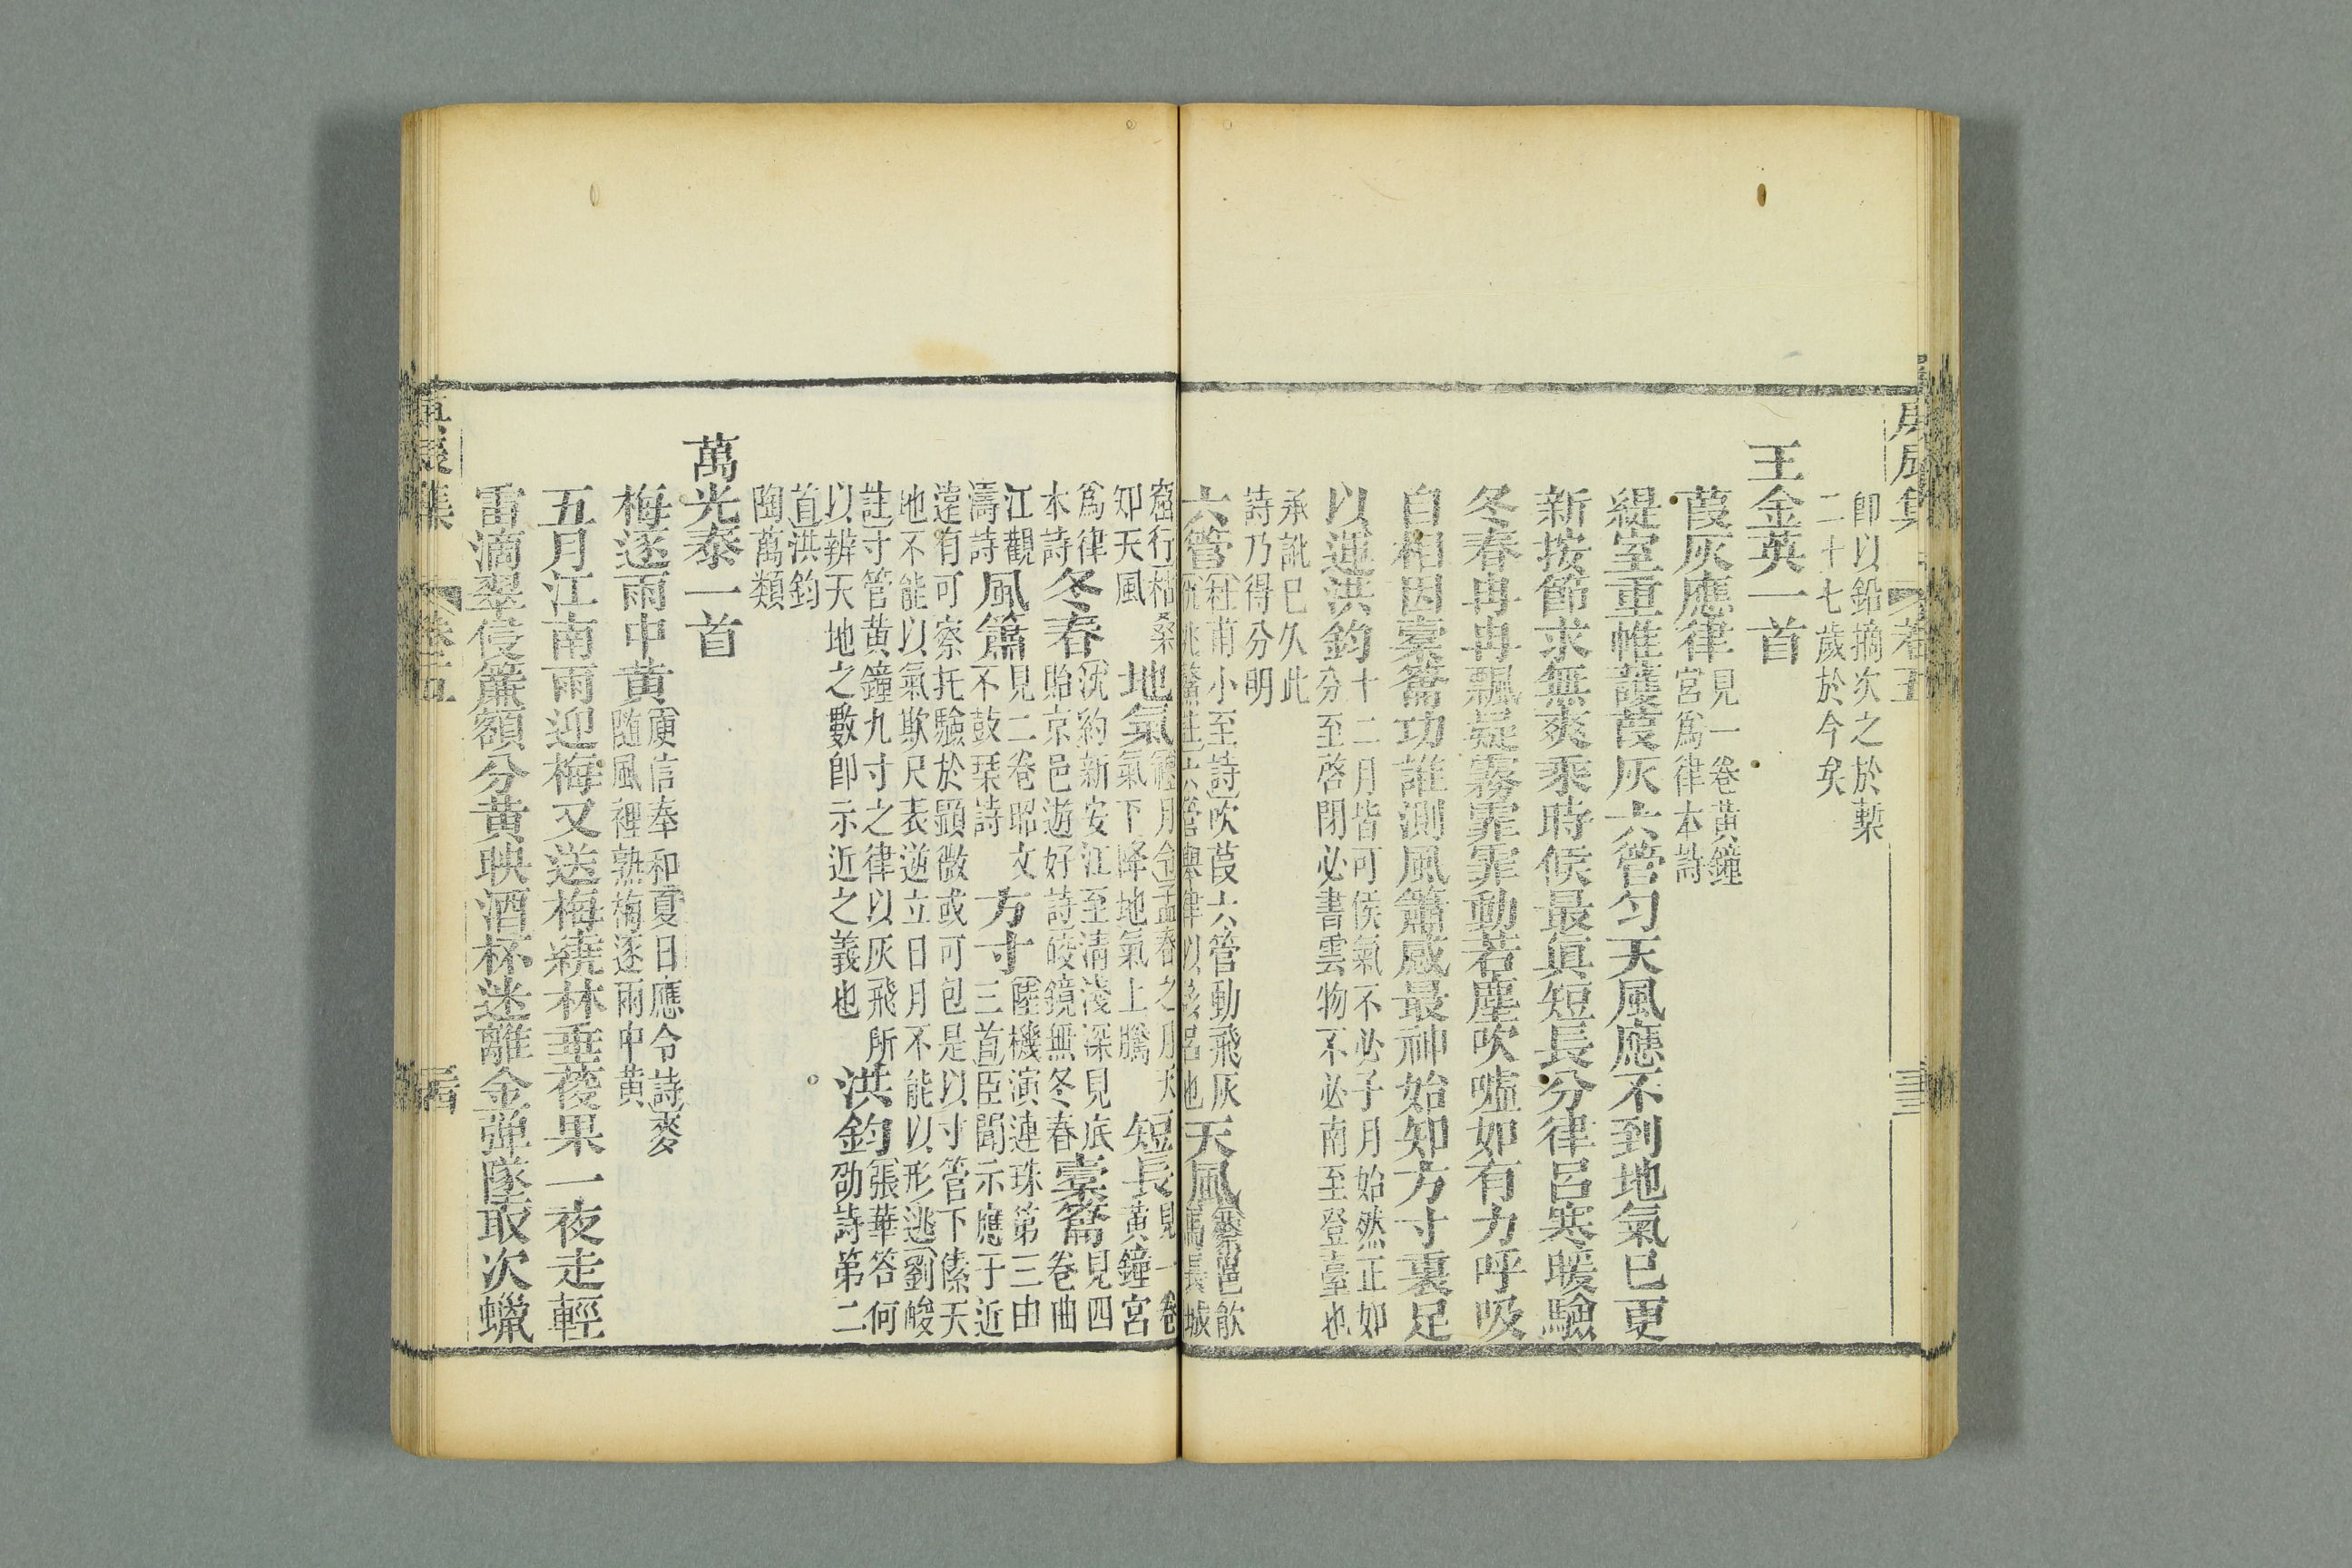 卽以鉛摘次之於槧
二十七歲於今矣
王金英一首
葭灰應律見一卷黃鐘
宮爲律本詩
緹室重帷護葭灰六管勻天風應不到地氣已更
新按節求無爽乘時候最眞短長分律呂寒暖驗
冬春冉冉飄疑霧霏霏動若塵吹噓如有力呼吸
自相因橐籥功誰測風簫感最神始知方寸裏足
以運洪鈞十二月皆可候氣不必子月始然正如
分至啓閉必書雲物不必南至登臺也
承訛已久此
詩乃得分明
六管杜甫小至詩吹葭六管動飛灰
天風蔡邕飮
馬長城
窟行枯桑
知天風
地氣禮月令孟春之月天
氣下降地氣上騰
短長見一卷
黃鐘宮
爲律
本詩
冬春沈約新安江至淸淺深見底
貽京邑遊好詩皎鏡無冬春
橐籥見四
卷曲
江觀
濤詩
風簫見二卷昭文
不鼓琹詩
方寸陸機演連珠第三由
三首臣聞示應于近
遠有可察托驗於顯微或可包是以寸管下傃天
地不能以氣欺尺表逆立日月不能以形逃劉峻
註寸管黃鐘九寸之律以灰飛所
以辨天地之數卽示近之義也
洪鈞張華答何
劭詩第二
首洪鈞
陶萬類
萬光泰一首
梅逐雨中黃庾信奉和夏日應令詩麥
隨風裡熟梅逐雨中黃
五月江南雨迎梅又送梅繞林垂葰果一夜走輕
雷滴翠侵簾額分黃映酒杯迷離金彈墜取次蠟